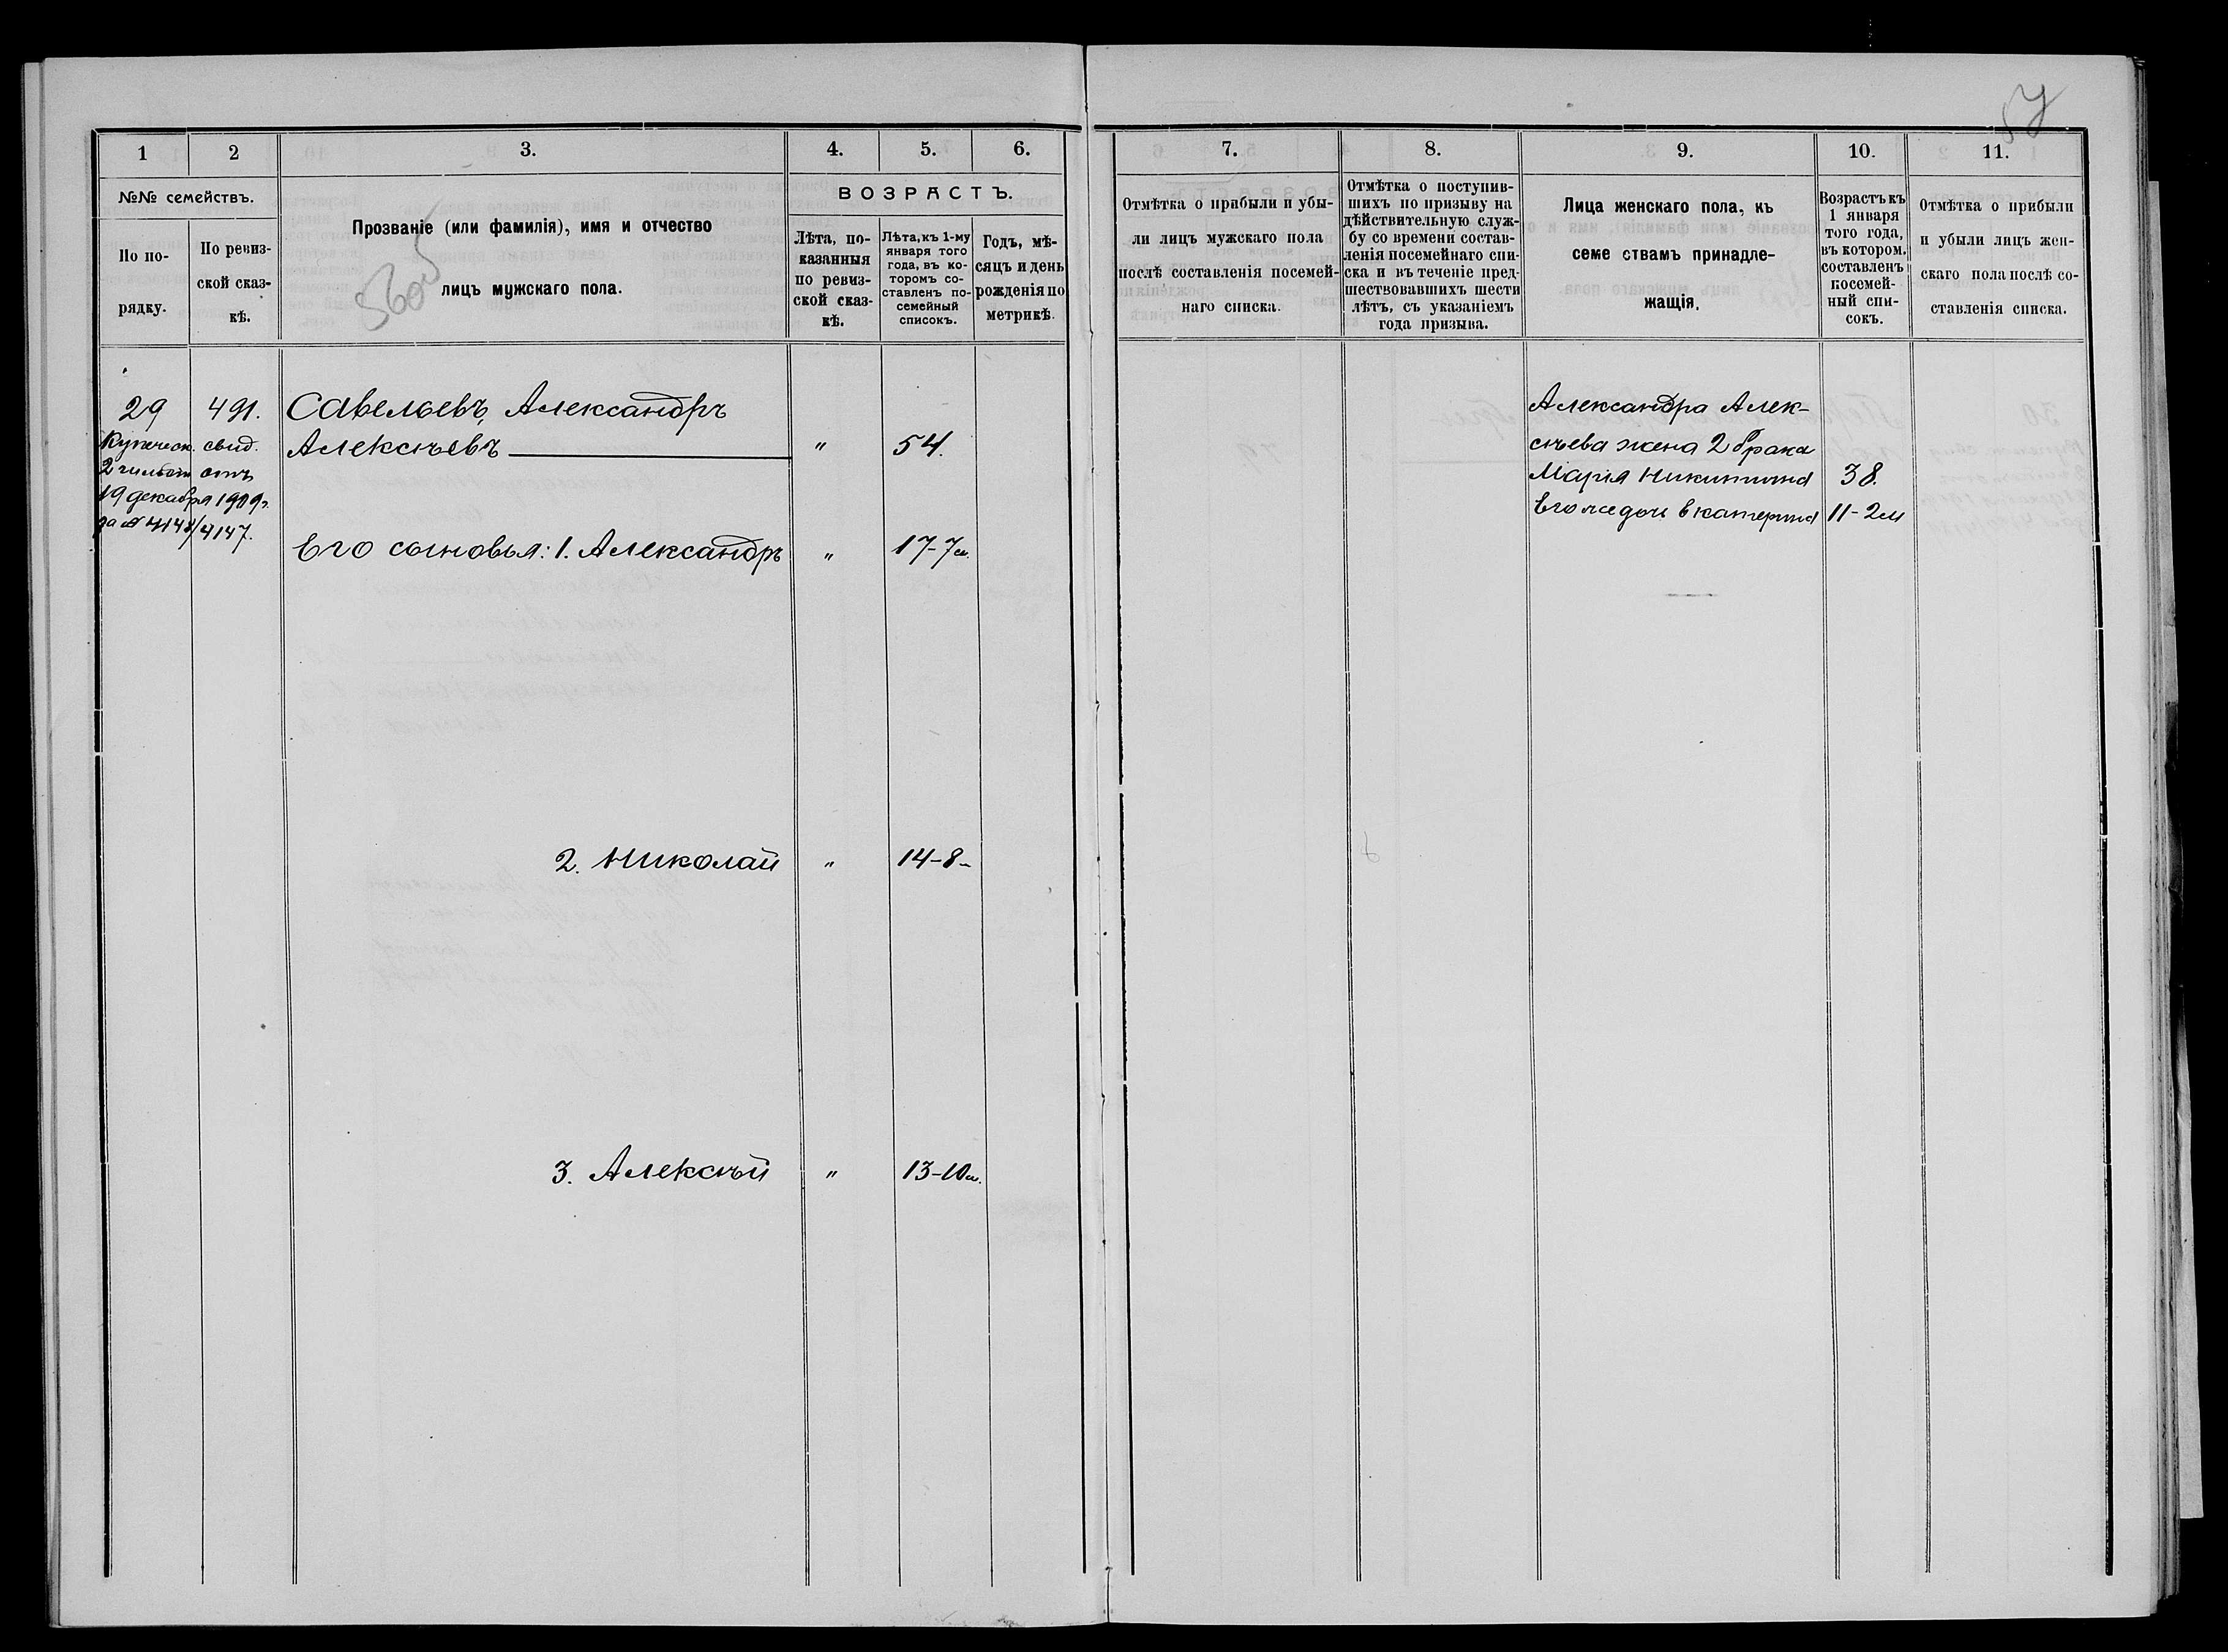 57
1 2 3. 4. 5. 6.
№№ семействъ.
По по-
рядку.
По ревиз-
ской сказ-
кѣ.
Прозваніе (или фамилія), имя и отчество
лицъ мужскаго пола.
ВОЗРАСТЪ.
Лѣта, по-
казанныя
по ревиз-
ской сказ-
кѣ.
Лѣта, къ 1-му
января того
года, въ ко-
торомъ со-
ставленъ по-
семейный
списокъ.
Годъ, мѣ-
сяцъ и день
рожденія по
метрикѣ.
7. 8. 9. 10. 11.
Отмѣтка о прибыли и убы-
ли лицъ мужскаго пола
послѣ составленія посемей-
наго списка.
Отмѣтка о поступив-
шихъ по призыву на
дѣйствительную служ-
бу со времени состав-
ленія посемейнаго спи-
ска и въ теченіе пред-
шествовавшихъ шести
лѣтъ, съ указаніемъ
года призыва.
Лица женскаго пола, къ
семе ствамъ принадле-
жащія.
Возрастъ къ
1 января
того года,
въ котором.
составленъ
посемей-
ный спи-
сокъ.
Отмѣтка о прибыли
и убыли лицъ жен-
скаго пола послѣ со-
ставленія списка.
29 491. Савельевъ, Александръ
Купеческ. свид.
2 гильдіи отъ
19 декабря 1909 г.
за № 4148/4147.
Алексѣевъ " 54.
Его сыновья: 1. Александръ " 17-7м.
2. Николай " 14-8-
3. Алексѣй " 13-10м.
Александра Алек-
сѣева жена 2 брака
Марія Никитина 38.
Его же дочь Екатерина 11-2м